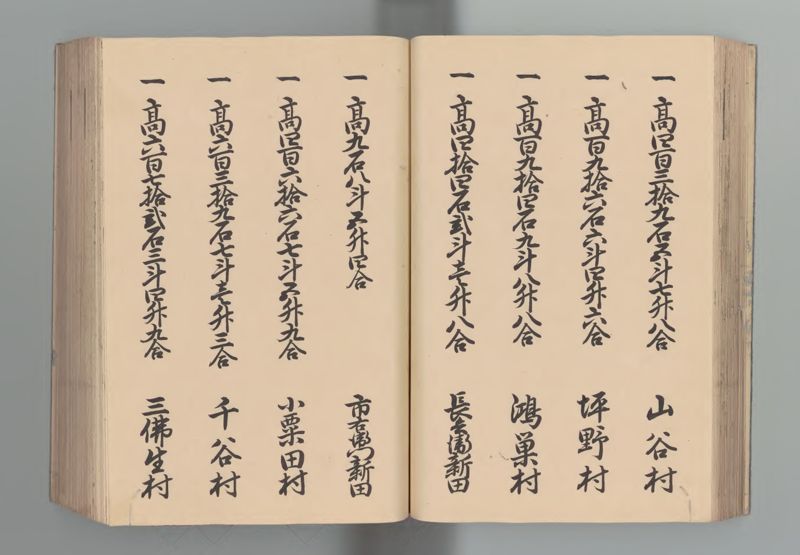 一 高四百三拾九石五斗七升八合 山谷村
一 高百九拾六石六斗四升六合 坪野村
一 高百九拾四石九斗八升八合 鴻巣村
一 高四拾四石弐斗壱升八合 長兵衛新田
一 高九石八斗五升四合 市右衛門新田
一 高四百六拾六石七斗五升九合 小粟田村
一 高六百三拾九石七斗壱升三合 千谷村
一 高六百七拾弐石三斗四升九合 三佛生村